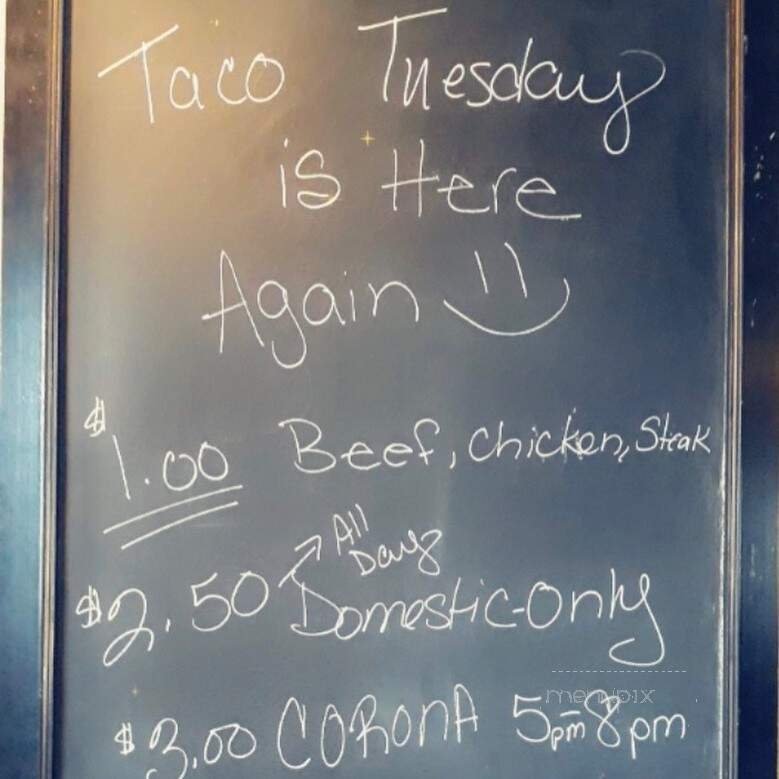 Taco Tuesday
is Here
Again
$1.00 Beef, Chicken, Steak
All
Day
$2.50 Domestic-only
menupix
$3.00 CORONA 5pm-8pm